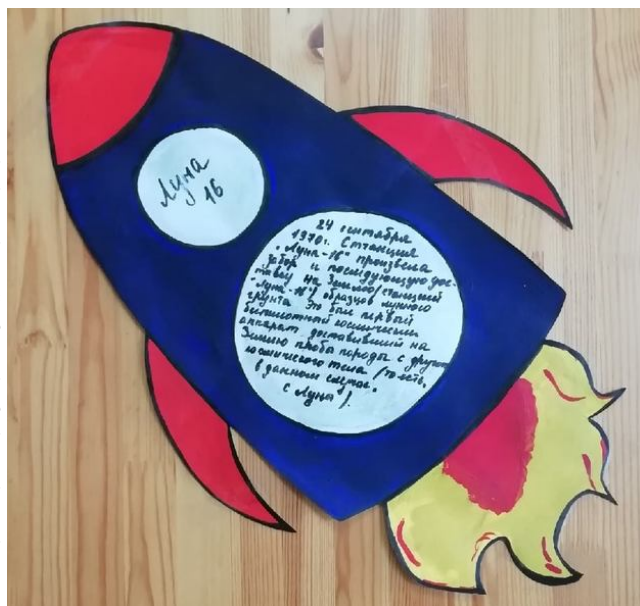 Луна
16
24 сентября
1970г. Станция
"Луна-16" произвела
забор и последующую дос-
тавку на Землю (станцией
"Луна-16") образцов лунного
грунта. Это был первый
беспилотный космический
аппарат, доставивший на
Землю пробы породы с другого
космического тела (то есть,
в данном случае,
с Луны).